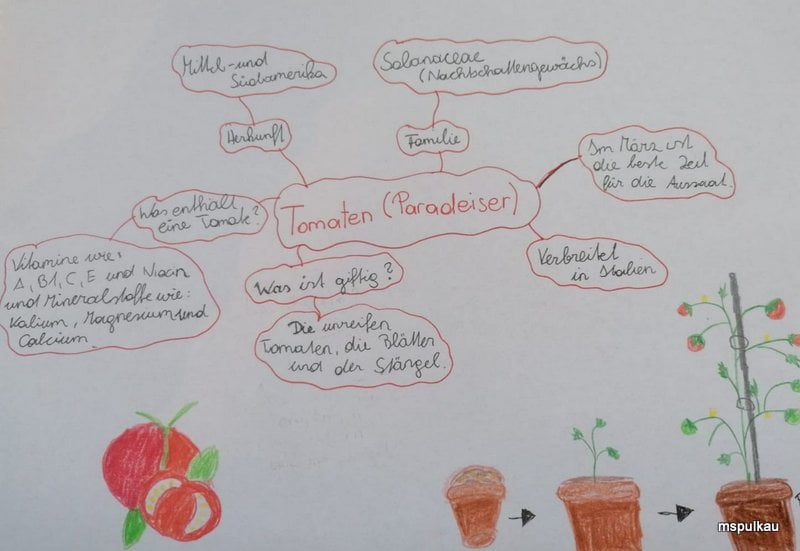 Mittel- und
Südamerika
Solanaceae
(Nachtschattengewächs)
Herkunft
Familie
Im März ist
die beste Zeit
für die Aussaat.
Was enthält
eine Tomate?
Tomaten (Paradeiser)
Vitamine wie:
A, B1, C, E und Niacin
und Mineralstoffe wie:
Kalium, Magnesium und
Calcium.
Was ist giftig?
Verbreitet
in Italien
Die unreifen
Tomaten, die Blätter
und der Stängel.
mspulkau